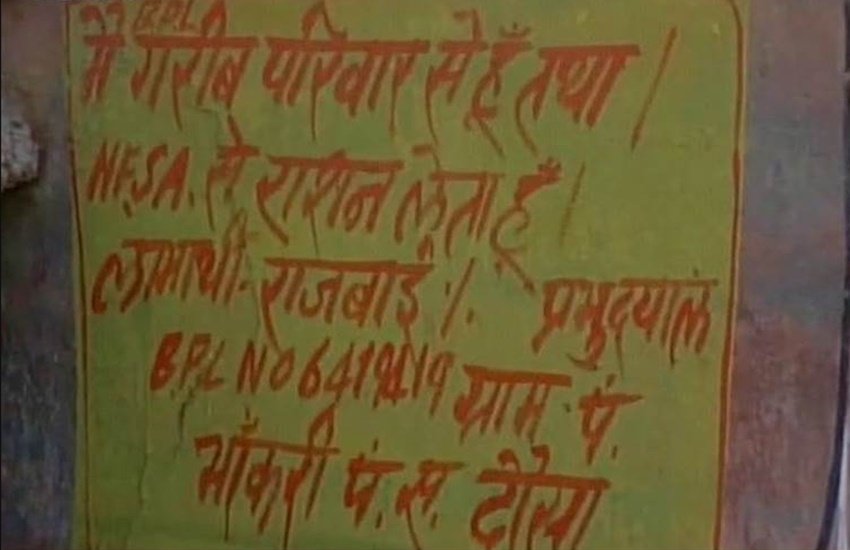 BPL
मै गरीब परिवार से हूँ तथा ।
N.F.S.A. से राशन लेता हूँ ।
लाभार्थी- राजबाई /. प्रभुदयाल
B.P.L NO ग्राम. पं.
भाँकरी पं. स. दौसा